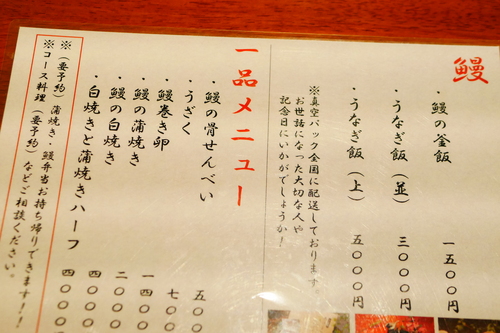 鰻
・鰻の釜飯 一五〇〇円
・うなぎ飯（並） 三〇〇〇円
・うなぎ飯（上） 五〇〇〇円
※真空パック全国に配送しております
お世話になった大切な人や
記念日にいかがでしょうか！
一品メニュー
・鰻の骨せんべい 五〇
・うざく 七〇
・鰻巻き卵 一四〇
・鰻の蒲焼き 二〇〇
・鰻の白焼き 四〇〇
・白焼きと蒲焼きハーフ 四〇〇〇
※（要予約）蒲焼き・鰻弁当お持ち帰りできます！！
※コース料理（要予約）などご相談ください。